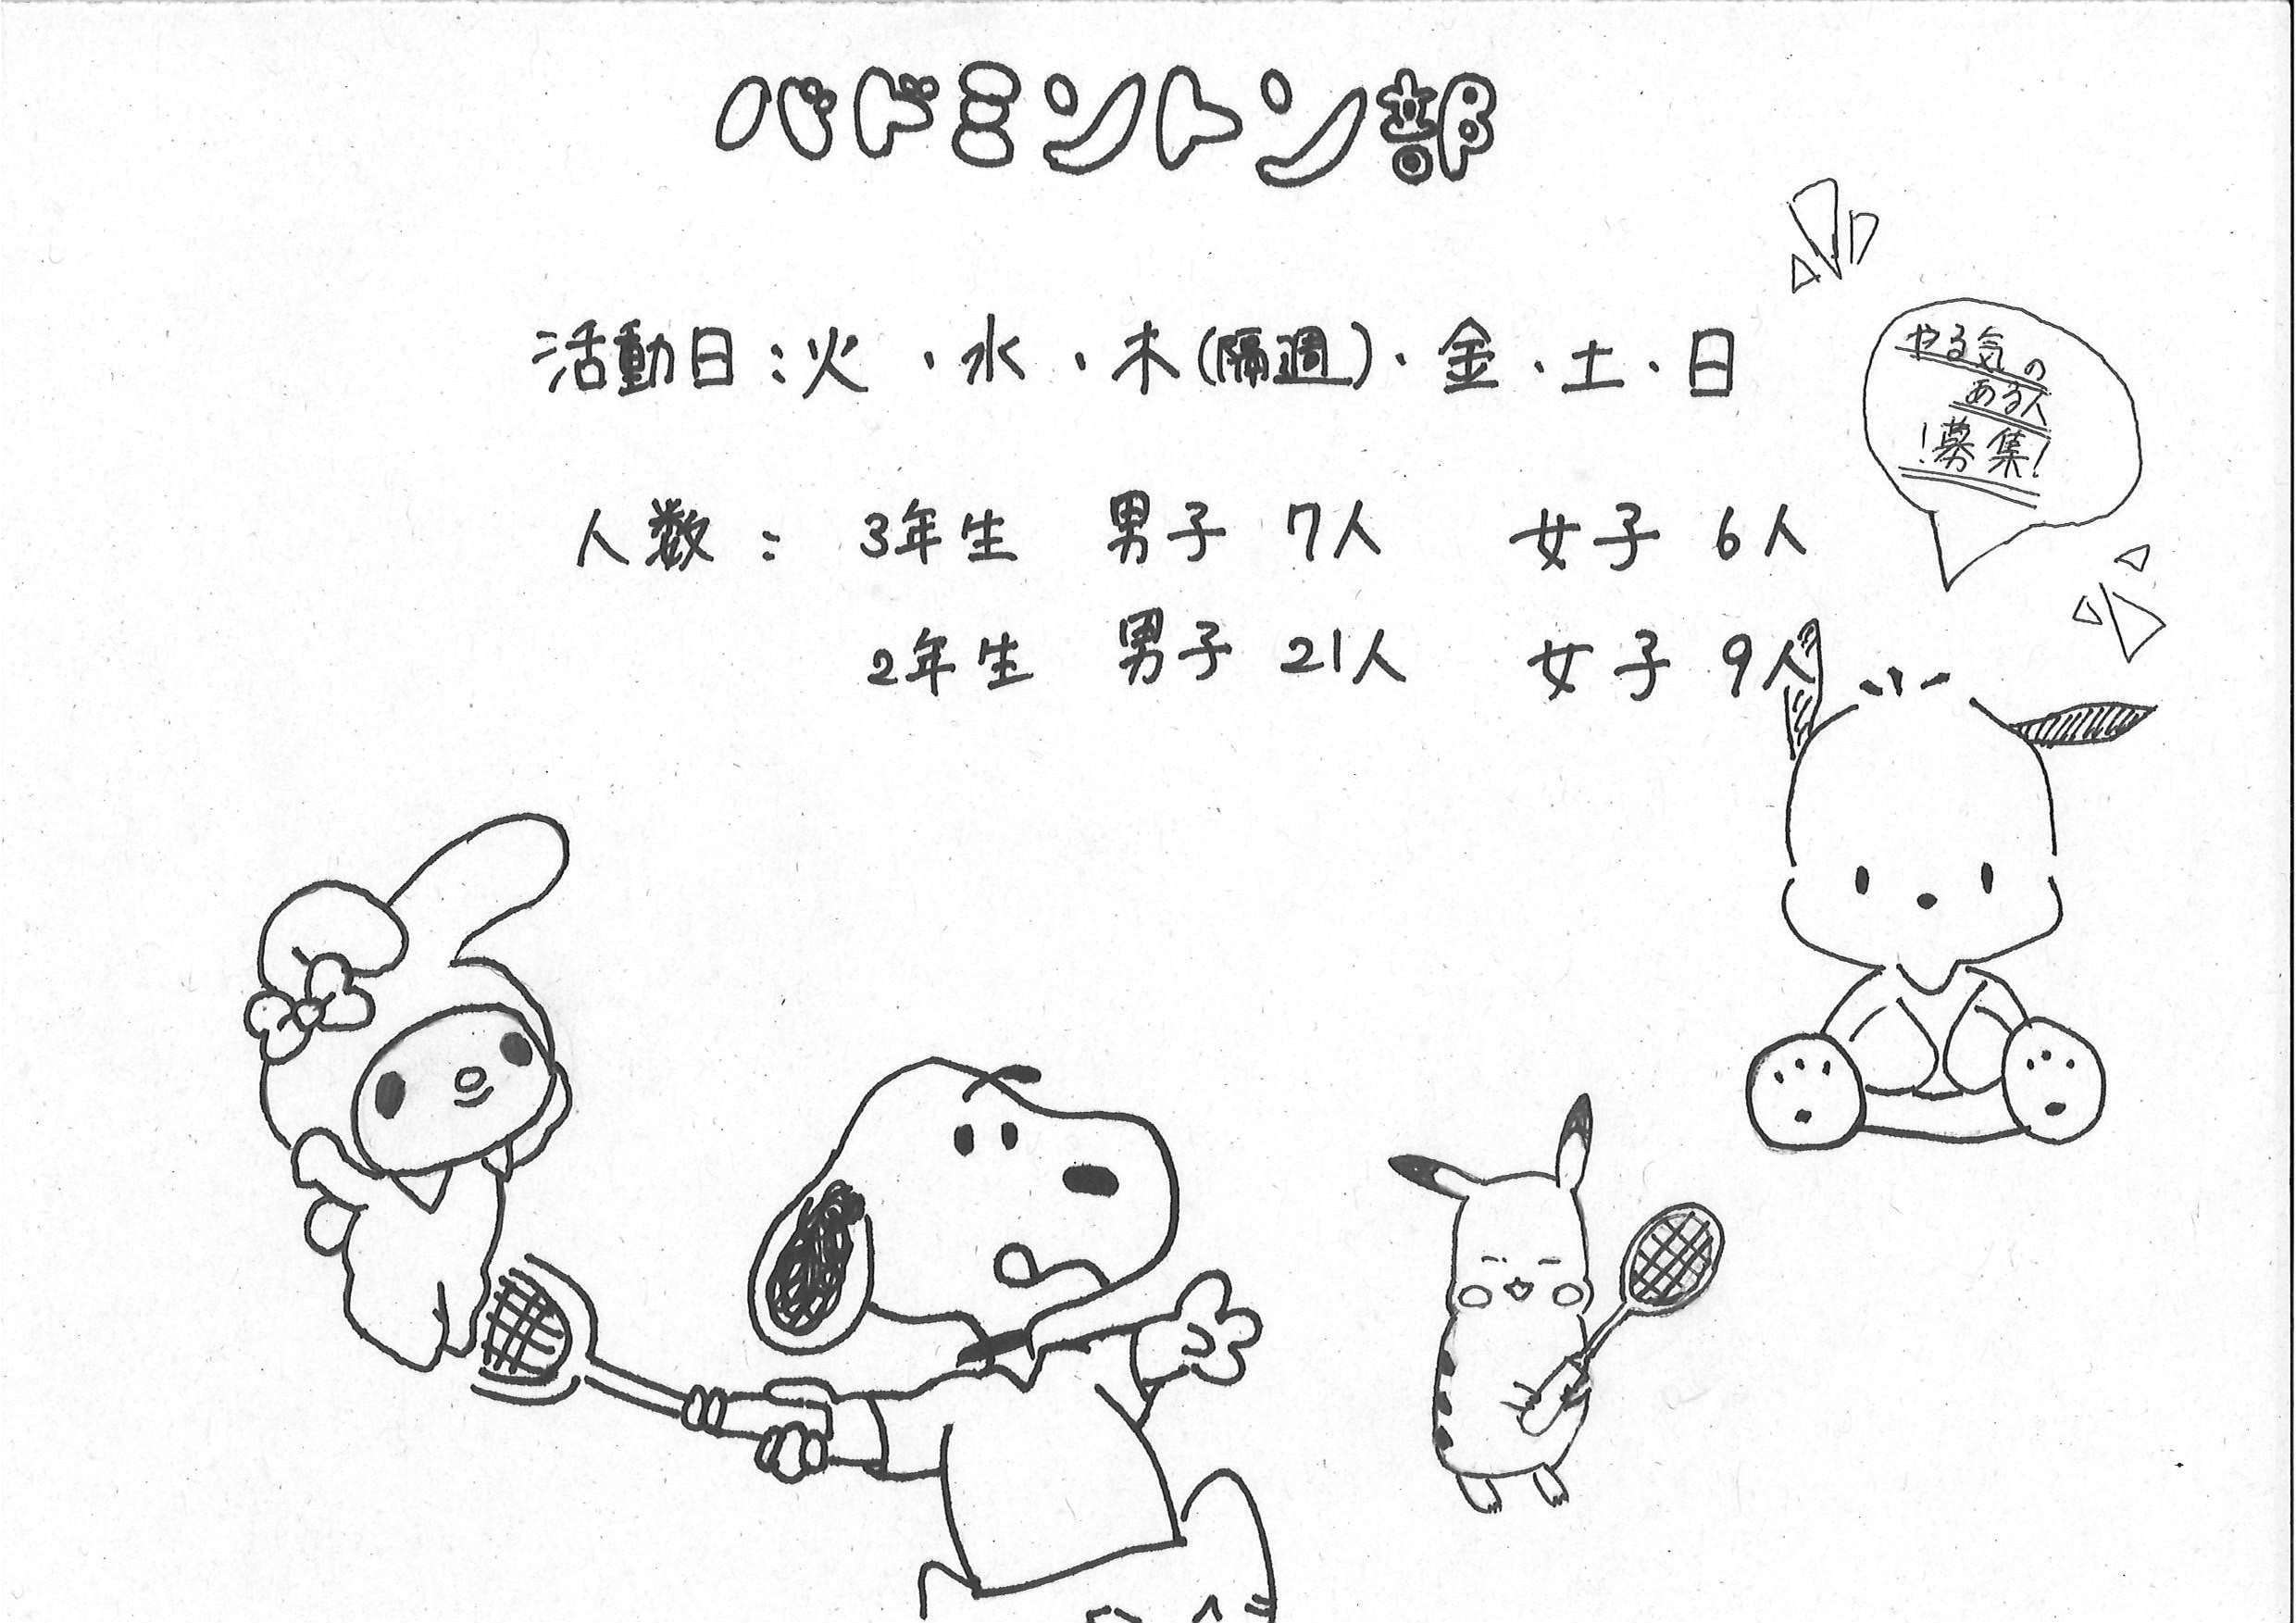 バドミントン部
活動日:火・水・木(隔週)・金・土・日
やる気の
ある人
!募集!
人数: 3年生 男子 7人 女子 6人
2年生 男子 21人 女子 9人